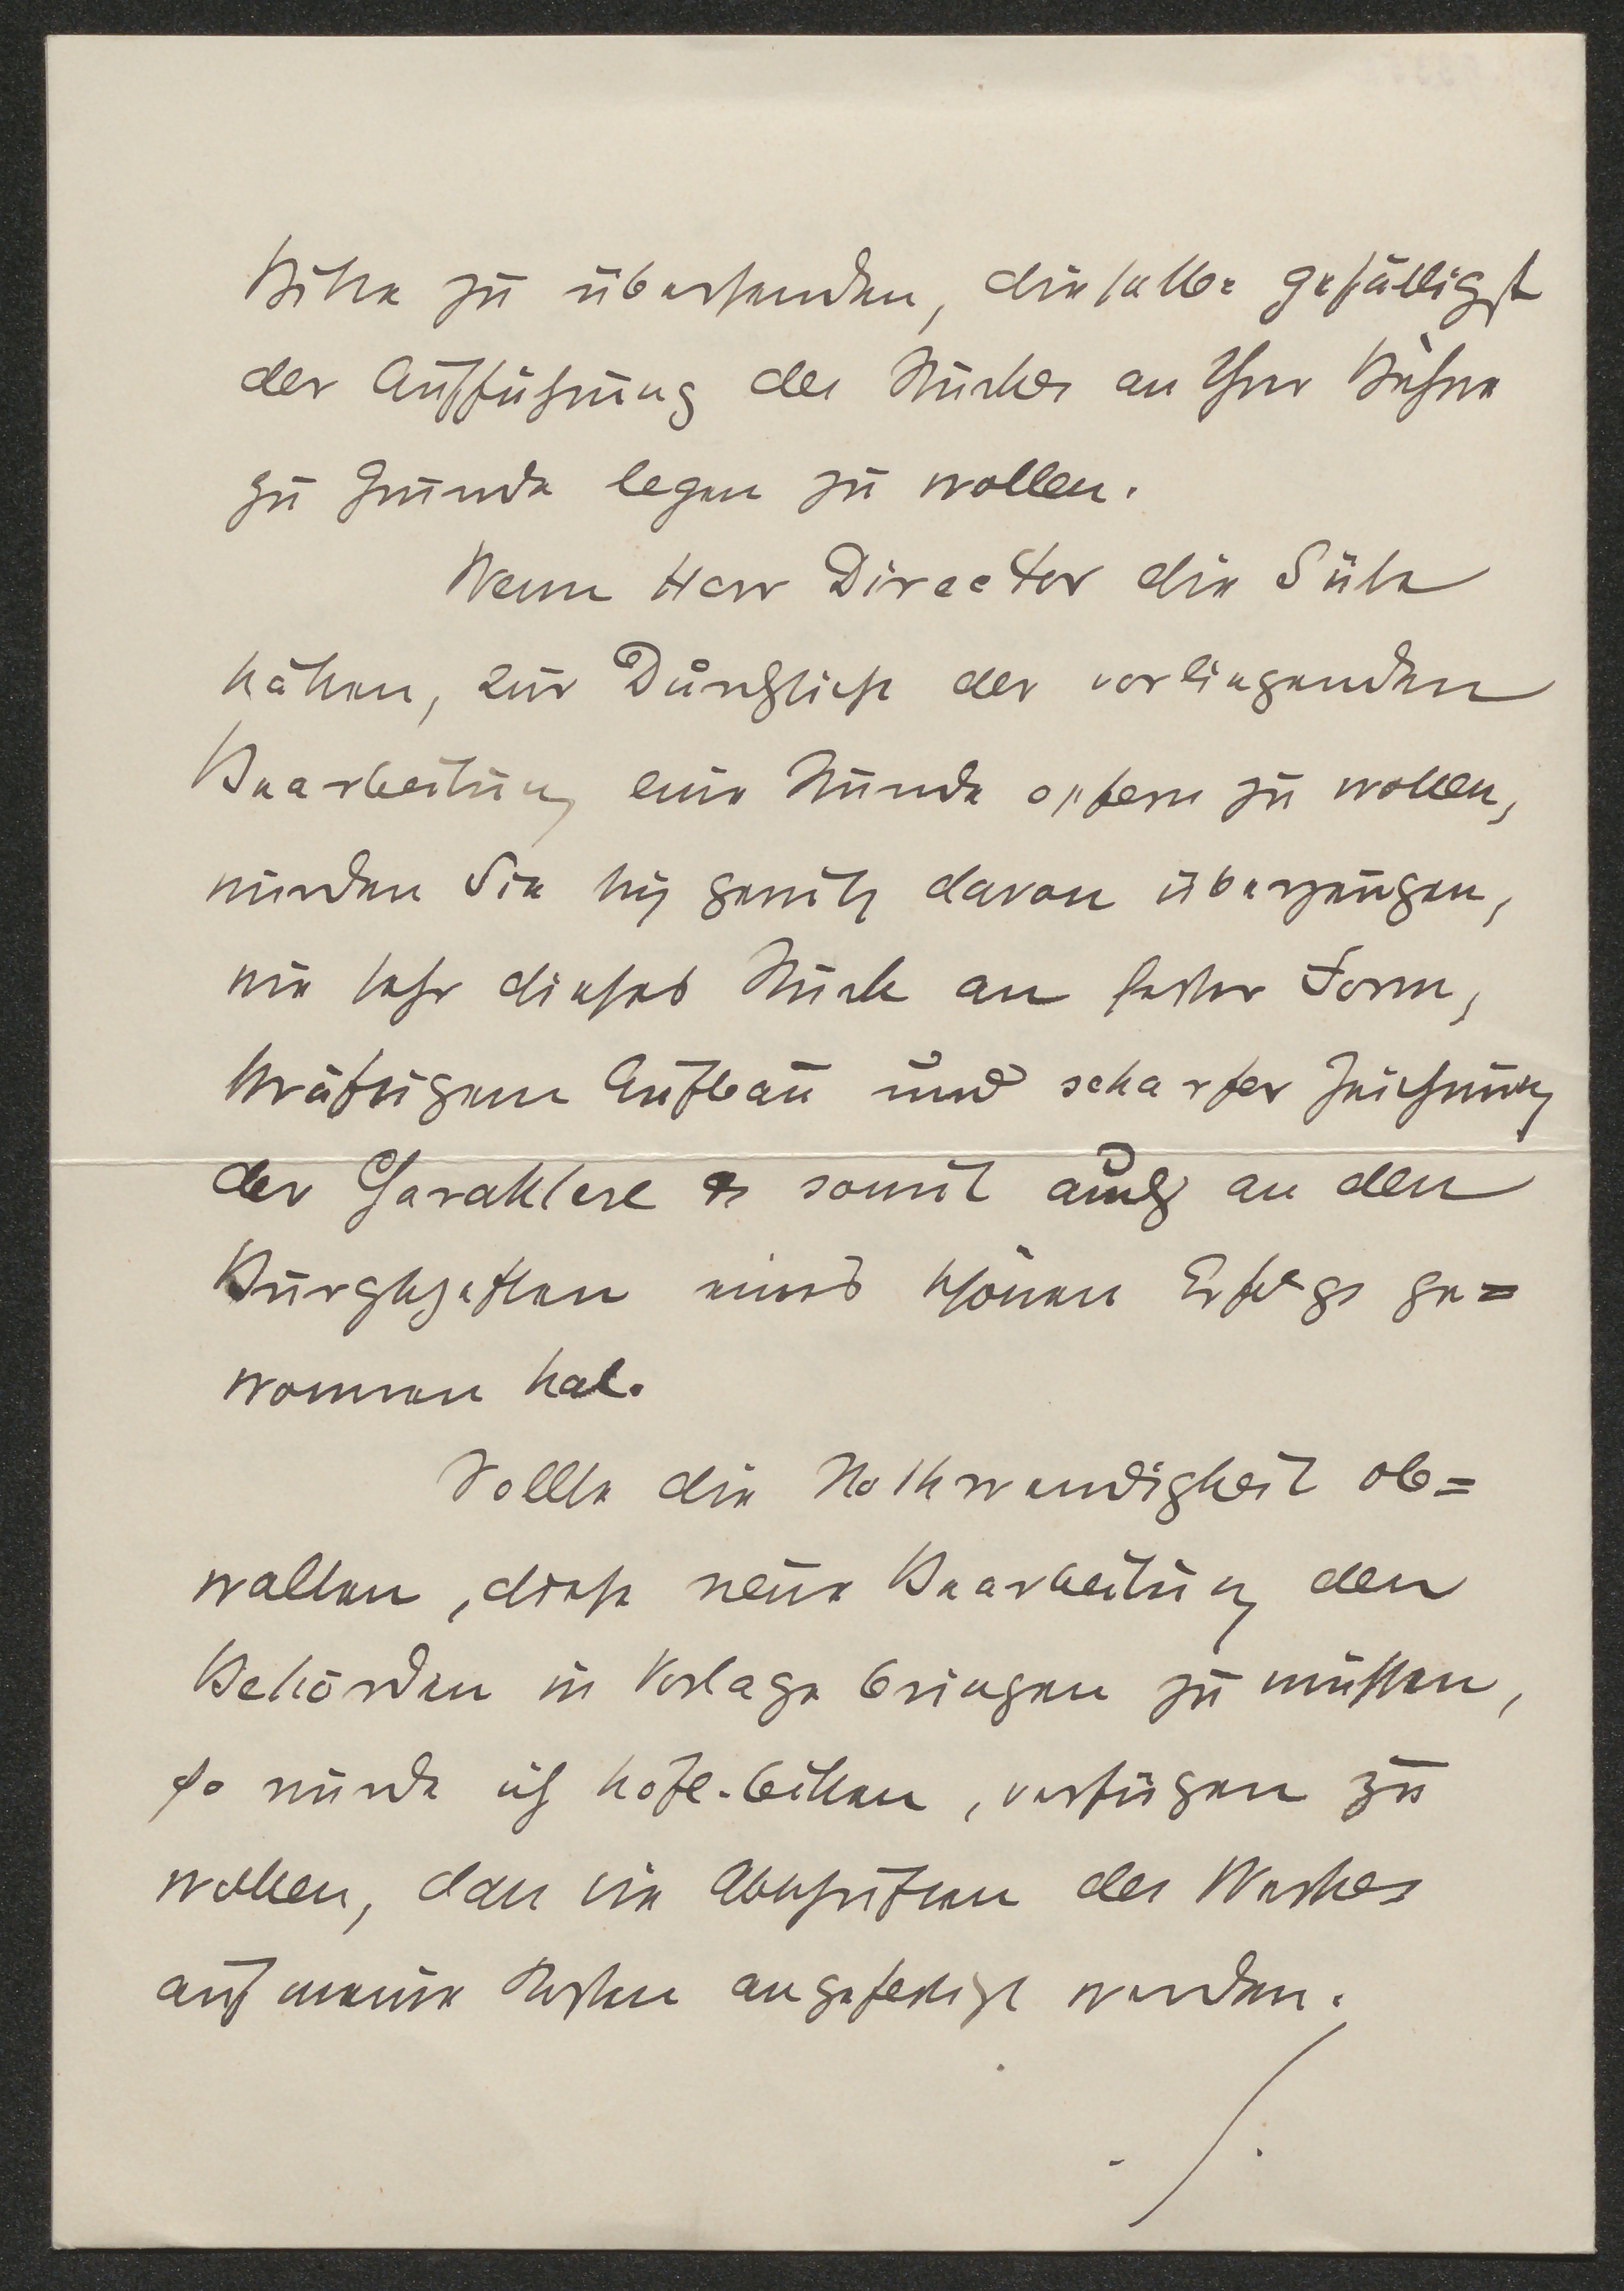 Bitte zu übersenden, dieselbe gefälligst
der Aufführung des Stückes an Ihrer Bühne
zu Grunde legen zu wollen.
Wenn Herr Director die Güte
hätten, zur Durchsicht der vorliegenden
Bearbeitung eine Stunde opfern zu wollen,
würden Sie sich gewiß davon überzeugen,
wie sehr dieses Stück an fester Form,
kräftigem Aufbau und scharfer Zeichnung
der Charaktere & somit auch an den
Bürgschaften eines schönen Erfolgs ge=
wonnen hat.
Sollte die Nothwendigkeit ob=
walten, diese neue Bearbeitung den
Behörden in Vorlage bringen zu müssen,
so würde ich höfl. bitten, verfügen zu
wollen, dass die Abschriften des Werkes
auf meine Kosten angefertigt werden.
./.